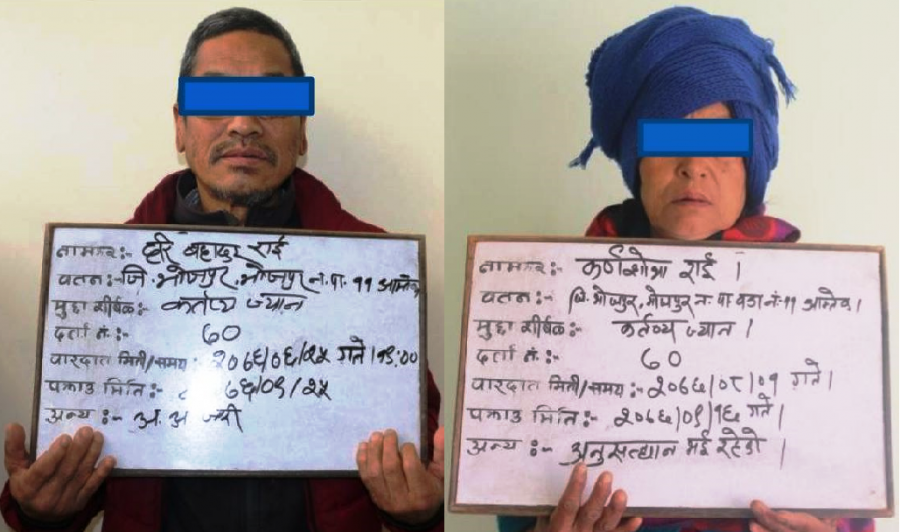 नामथर:- हरि बहादुर राई
वतन:- जि. भोजपुर, भोजपुर न. पा. ११
मुद्दा शीर्षक: कर्तव्य ज्यान
दर्ता नं.:- ६०
वारदात मिति/समय: २०७६/०६/२५ गते।
पक्राउ मिति: ७६/०९/२५
अन्य:- अ. अ जारी
नामथर:- राई।
वतन:- जि. भोजपुर, भोजपुर न. पा वडा नं. ११
मुद्दा शीर्षक:- कर्तव्य ज्यान।
दर्ता नं.:- ६०
वारदात मिति/समय:- २०७६/०८/०१ गते।
पक्राउ मिति:- २०७६/०९/१६ गते।
अन्य:- अनुसन्धान भई रहेको।